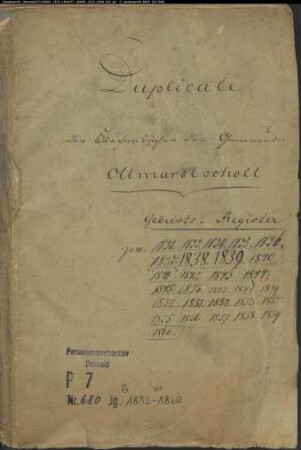 Duplicate
der Kirchenbücher der Gemeinde
Geburts-Register
1832. 1833. 1834. 1835. 1836.
1837. 1838 1839 1840
1841 1842 1843 1844
1845 1846 1847 1848 1849
1850 1851 1852 1853 1854
1855 1856 1857 1858 1859
1860
Personenstandsarchiv
Detmold
P 7
Nr. 680 Jg. 1832-1860